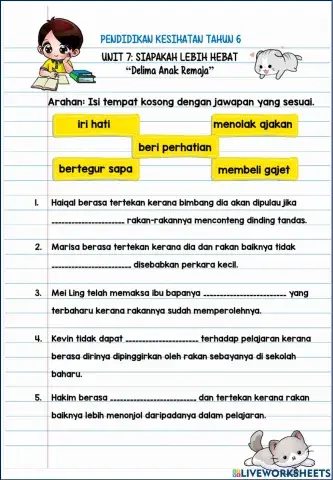 PENDIDIKAN KESIHATAN TAHUN 6
UNIT 7: SIAPAKAH LEBIH HEBAT
"Delima Anak Remaja"
Arahan: Isi tempat kosong dengan jawapan yang sesuai.
iri hati
menolak ajakan
beri perhatian
bertegur sapa
membeli gajet
1. Haiqal berasa tertekan kerana bimbang dia akan dipulau jika
____________________ rakan-rakannya menconteng dinding tandas.
2. Marisa berasa tertekan kerana dia dan rakan baiknya tidak
____________________ disebabkan perkara kecil.
3. Mei Ling telah memaksa ibu bapanya ____________________ yang
terbaharu kerana rakannya sudah memperolehnya.
4. Kevin tidak dapat ____________________ terhadap pelajaran kerana
berasa dirinya dipinggirkan oleh rakan sebayanya di sekolah
baharu.
5. Hakim berasa ____________________ dan tertekan kerana rakan
baiknya lebih menonjol daripadanya dalam pelajaran.
LIVEWORKSHEETS